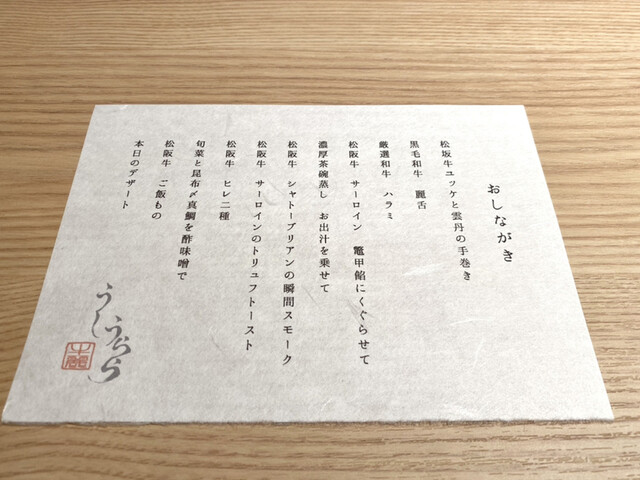 おしながき
松坂牛ユッケと雲丹の手巻き
黒毛和牛 麗舌
厳選和牛 ハラミ
松阪牛 サーロイン 鼈甲餡にくぐらせて
濃厚茶碗蒸し お出汁を乗せて
松阪牛 シャトーブリアンの瞬間スモーク
松阪牛 サーロインのトリュフトースト
松阪牛 ヒレ二種
旬菜と昆布〆真鯛を酢味噌で
松阪牛 ご飯もの
本日のデザート
うし
うらら